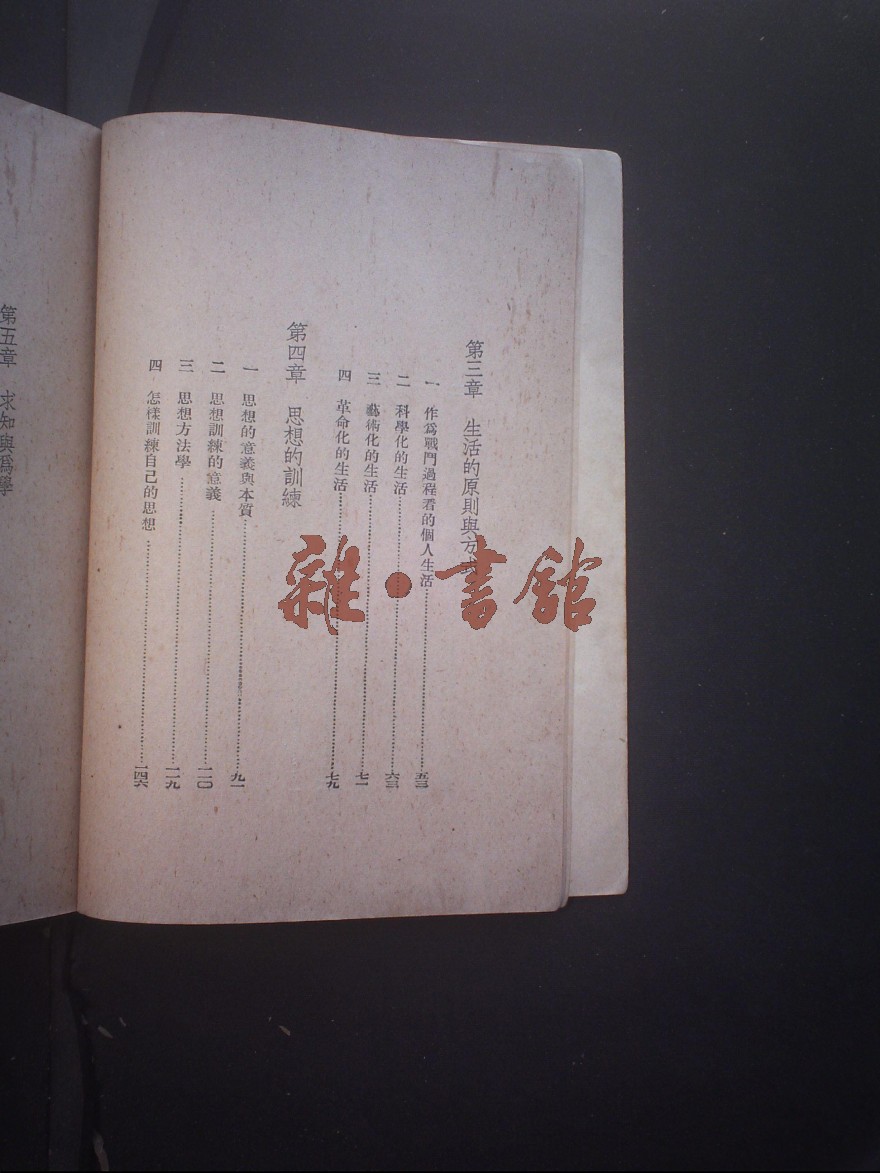 第三章 生活的原則與方式
一 作爲戰鬥過程看的個人生活……五三
二 科學化的生活……六三
三 藝術化的生活……七一
四 革命化的生活……七九
第四章 思想的訓練
一 思想的意義與本質……九一
二 思想訓練的意義……一一〇
三 思想方法學……一一九
四 怎樣訓練自己的思想……一四六
第五章 求知與爲學
雜·書館